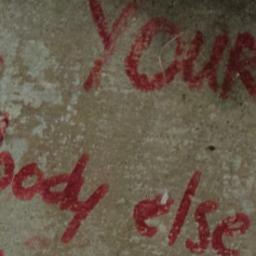 YOUR
body else